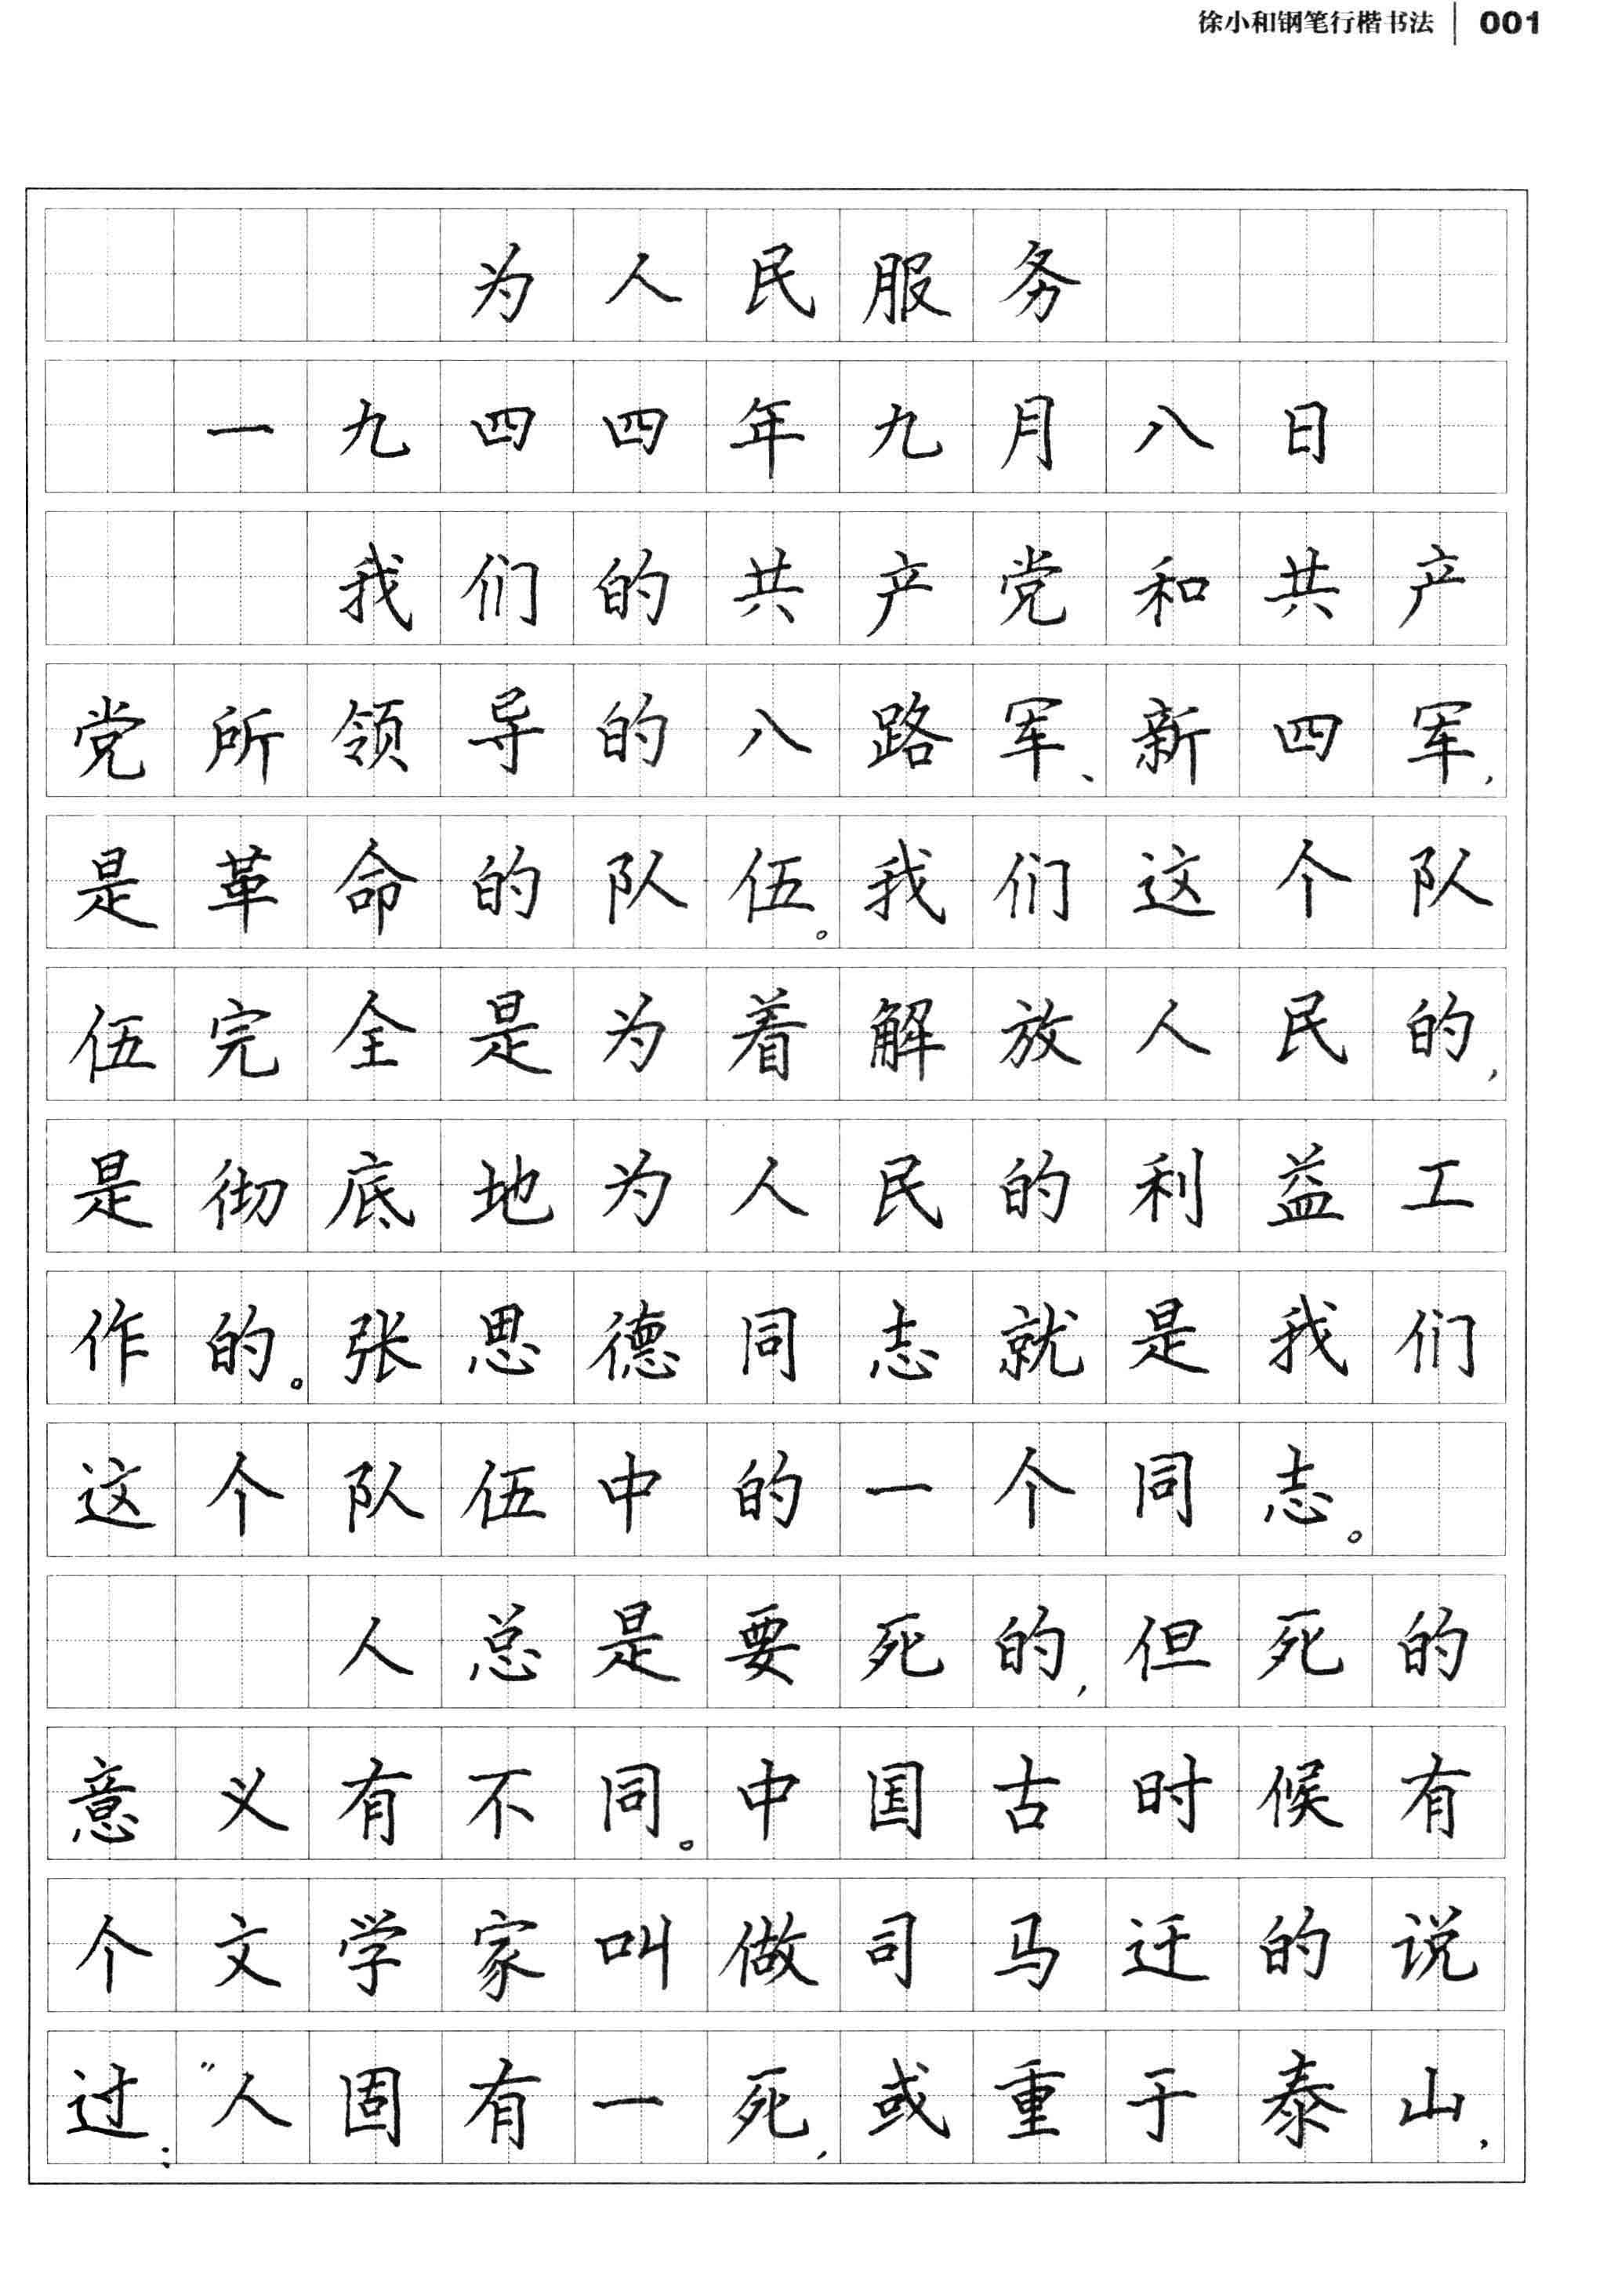 徐小和钢笔行楷书法 | 001
为人民服务
一九四四年九月八日
我们的共产党和共产
党所领导的八路军、新四军,
是革命的队伍。我们这个队
伍完全是为着解放人民的,
是彻底地为人民的利益工
作的。张思德同志就是我们
这个队伍中的一个同志。
人总是要死的,但死的
意义有不同。中国古时候有
个文学家叫做司马迁的说
过:“人固有一死,或重于泰山,